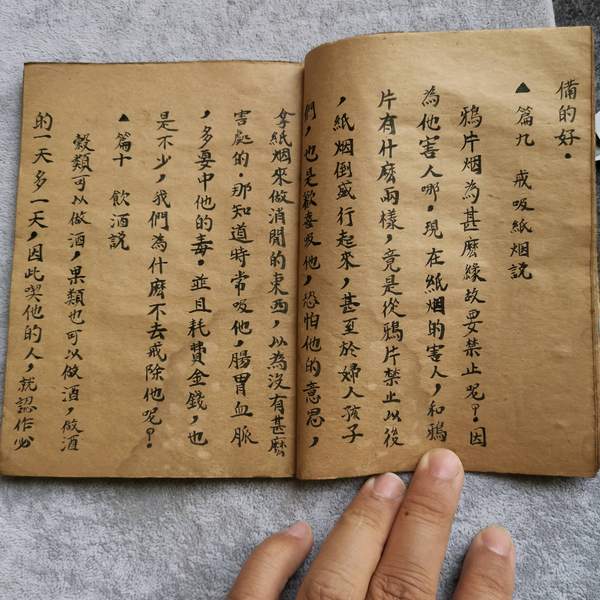 備的好．
▲ 篇九 戒吸紙烟説
鴉片烟為甚麽緣故要禁止呢？因
為他害人哪．現在紙烟的害人，和鴉
片有什麽兩樣，竟是從鴉片禁止以後
，紙烟倒盛行起來，甚至於婦人孩子
們，也是歡喜吸他，恐怕他的意思，
拿紙烟來做消閒的東西，以為沒有甚麽
害處的．那知道時常吸他，腸胃血脈
，多要中他的毒．並且耗費金錢，也
是不少，我們為什麽不去戒除他呢？．
▲ 篇十 飲酒説
穀類可以做酒，果類也可以做酒，做酒
的一天多一天，因此喫他的人，就認作必